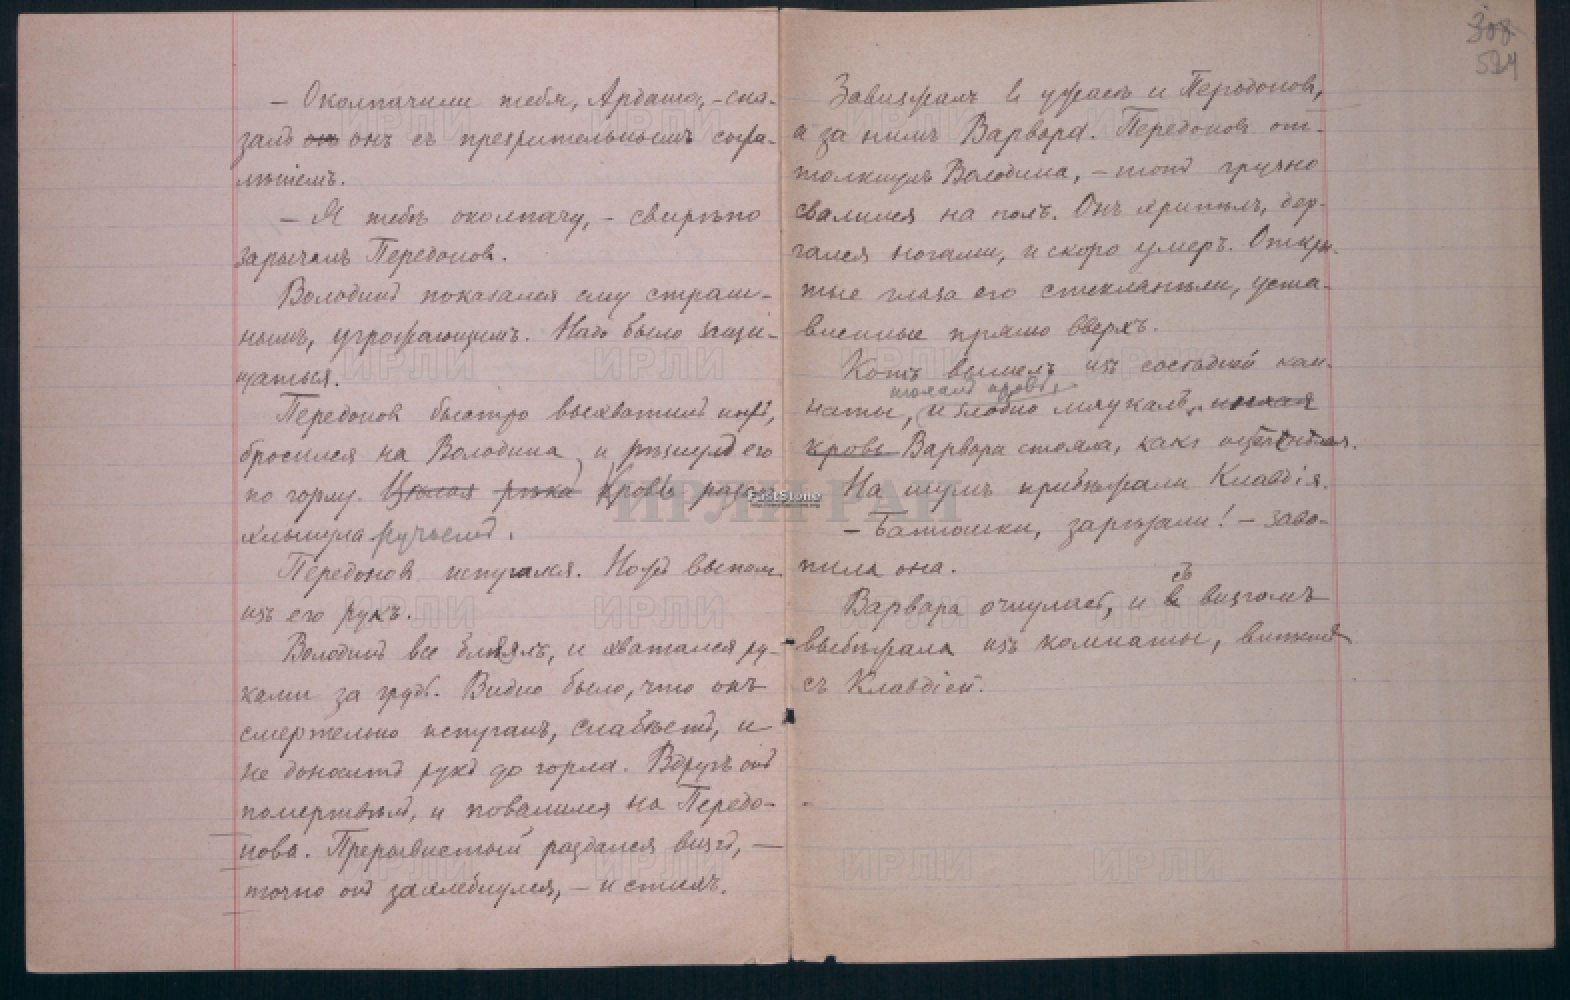 308
524
— Околпачили тебя, Ардаша, — ска-
залъ он онъ съ презрительнымъ сожа-
лѣніемъ.
— Я тебѣ околпачу, — свирѣпо
зарычалъ Передоновъ.
Володинъ показался ему страш-
нымъ, угрожающимъ. Надо было защи-
щаться.
Передоновъ быстро выхватилъ ножъ,
бросился на Володина и рѣзнулъ его
по горлу. Цѣлая рѣка Кровь
хлынула ручьемъ.
Передоновъ испугался. Ножъ выпалъ
изъ его рукъ.
Володинъ все блеялъ, и хватался ру-
ками за грудь. Видно было, что онъ
смертельно испуганъ, слабѣетъ, и
не доноситъ рукъ до горла. Вдругъ онъ
помертвѣлъ, и повалился на Передо-
нова. Прерывистый раздался визгъ, —
точно онъ захлебнулся, — и стихъ.
Завизжалъ в ужасѣ и Передоновъ,
а за нимъ Варвара. Передоновъ от-
толкнулъ Володина, — тотъ грузно
свалился на полъ. Онъ хрипѣлъ, дер-
гался ногами, и скоро умеръ. Откры-
тые глаза его стекленѣли, уста-
вленные прямо вверхъ.
Котъ вышелъ изъ сосѣдней ком-
нюхалъ кровь,
наты, и злобно мяукалъ, нюхая
кровь Варвара стояла, какъ оцѣпенѣлая.
На шумъ прибѣжала Клавдія.
— Батюшки, зарѣзали! — заво-
пила она.
съ
Варвара очнулась, и в визгомъ
выбѣжала изъ комнаты, вмѣстѣ
съ Клавдіей.
ИРЛИ РАН
FastStone
ИРЛИ